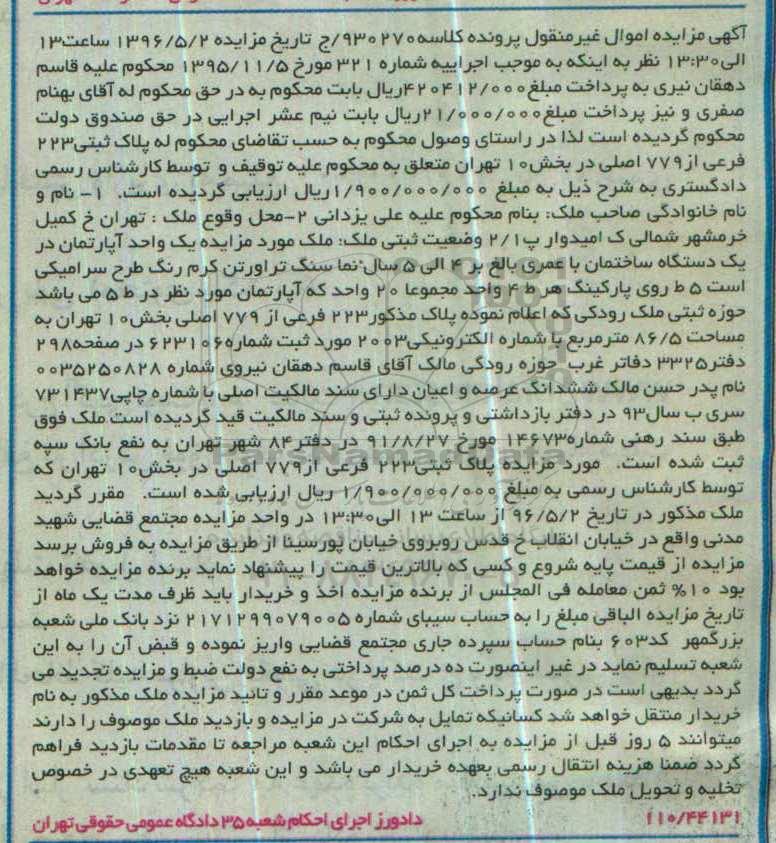 آگهی مزایده اموال غیرمنقول پرونده کلاسه۹۳۰۲۷۰/ج تاریخ مزایده ۱۳۹۶/۵/۲ ساعت۱۳
الی۱۳:۳۰ نظر به اینکه به موجب اجراییه شماره ۳۲۱ مورخ ۱۳۹۵/۱۱/۵ محکوم علیه قاسم
دهقان نیری به پرداخت مبلغ۴۲۰۴۱۲/۰۰۰ریال بابت محکوم به در حق محکوم له آقای بهنام
صفری و نیز پرداخت مبلغ۲۱/۰۰۰/۰۰۰ریال بابت نیم عشر اجرایی در حق صندوق دولت
محکوم گردیده است لذا در راستای وصول محکوم به حسب تقاضای محکوم له پلاک ثبتی۲۲۳
فرعی از۷۷۹ اصلی در بخش۱۰ تهران متعلق به محکوم علیه توقیف و توسط کارشناس رسمی
دادگستری به شرح ذیل به مبلغ ۱/۹۰۰/۰۰۰/۰۰۰ریال ارزیابی گردیده است. ۱- نام و
نام خانوادگی صاحب ملک: بنام محکوم علیه علی یزدانی ۲-محل وقوع ملک : تهران خ کمیل
خرمشهر شمالی ک امیدوار پ۲/۱ وضعیت ثبتی ملک: ملک مورد مزایده یک واحد آپارتمان در
یک دستگاه ساختمان با عمری بالغ بر ۴ الی ۵ سال نما سنگ تراورتن کرم رنگ طرح سرامیکی
است ۵ ط روی پارکینگ هر ط ۴ واحد مجموعا ۲۰ واحد که آپارتمان مورد نظر در ط ۵ می باشد
حوزه ثبتی ملک رودکی که اعلام نموده پلاک مذکور۲۲۳ فرعی از ۷۷۹ اصلی بخش۱۰ تهران به
مساحت ۸۶/۵ مترمربع با شماره الکترونیکی۲۰۰۳ مورد ثبت شماره۶۲۳۱۰۶ در صفحه۲۹۸
دفتر۳۳۲۵ دفاتر غرب حوزه رودکی مالک آقای قاسم دهقان نیروی شماره ۰۰۳۵۲۵۰۸۲۸
نام پدر حسن مالک ششدانگ عرصه و اعیان دارای سند مالکیت اصلی با شماره چاپی۷۳۱۴۳۷
سری ب سال۹۳ در دفتر بازداشتی و پرونده ثبتی و سند مالکیت قید گردیده است ملک فوق
طبق سند رهنی شماره۱۴۶۷۳ مورخ ۹۱/۸/۲۷ در دفتر۸۴ شهر تهران به نفع بانک سپه
ثبت شده است. مورد مزایده پلاک ثبتی۲۲۳ فرعی از۷۷۹ اصلی در بخش۱۰ تهران که
توسط کارشناس رسمی به مبلغ ۱/۹۰۰/۰۰۰/۰۰۰ ریال ارزیابی شده است. مقرر گردید
ملک مذکور در تاریخ ۹۶/۵/۲ از ساعت ۱۳ الی۱۳:۳۰ در واحد مزایده مجتمع قضایی شهید
مدنی واقع در خیابان انقلاب خ قدس روبروی خیابان پورسینا از طریق مزایده به فروش برسد
مزایده از قیمت پایه شروع و کسی که بالاترین قیمت را پیشنهاد نماید برنده مزایده خواهد
بود ۱۰% ثمن معامله فی المجلس از برنده مزایده اخذ و خریدار باید ظرف مدت یک ماه از
تاریخ مزایده الباقی مبلغ را به حساب سیبای شماره ۲۱۷۱۲۹۹۰۷۹۰۰۵ نزد بانک ملی شعبه
بزرگمهر کد۶۰۳ بنام حساب سپرده جاری مجتمع قضایی واریز نموده و قبض آن را به این
شعبه تسلیم نماید در غیر اینصورت ده درصد پرداختی به نفع دولت ضبط و مزایده تجدید می
گردد بدیهی است در صورت پرداخت کل ثمن در موعد مقرر و تائید مزایده ملک مذکور به نام
خریدار منتقل خواهد شد کسانیکه تمایل به شرکت در مزایده و بازدید ملک موصوف را دارند
میتوانند ۵ روز قبل از مزایده به اجرای احکام این شعبه مراجعه تا مقدمات بازدید فراهم
گردد ضمنا هزینه انتقال رسمی بعهده خریدار می باشد و این شعبه هیچ تعهدی در خصوص
تخلیه و تحویل ملک موصوف ندارد.
۱۱۰/۴۴۱۳۱ دادورز اجرای احکام شعبه ۳۵ دادگاه عمومی حقوقی تهران